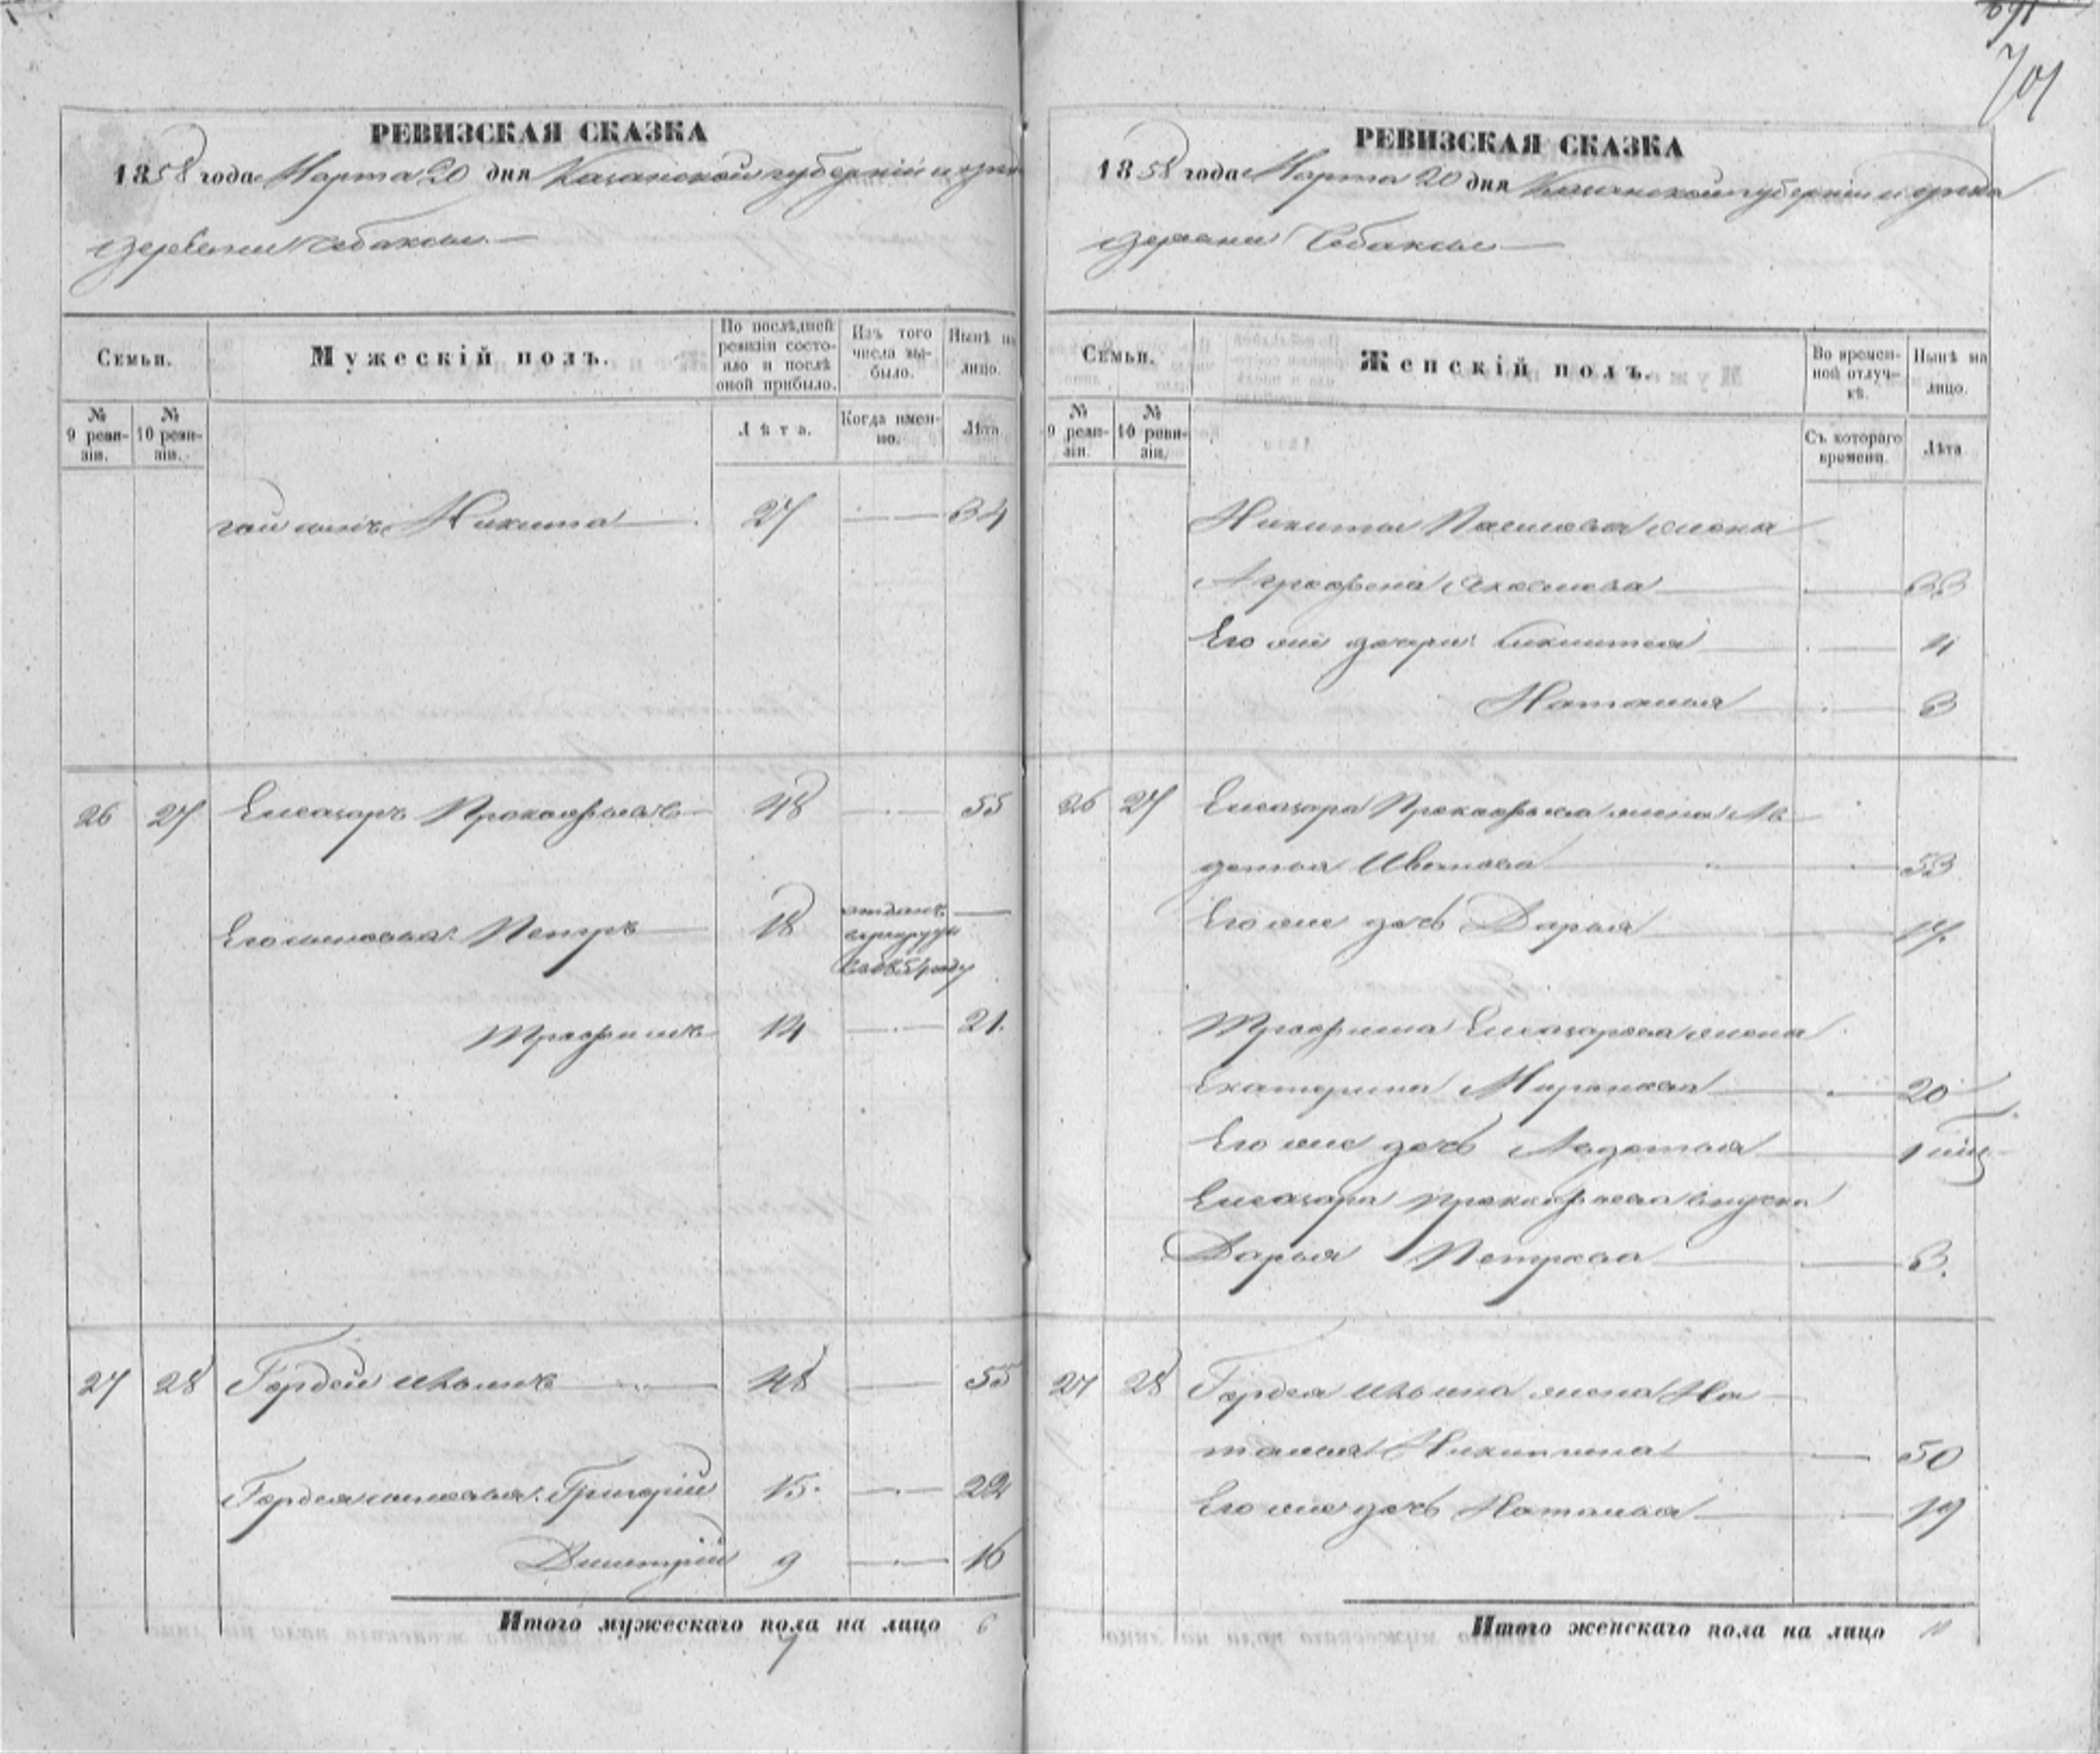 701
РЕВИЗСКАЯ СКАЗКА
1858 года Марта 20 дня Казанской губерніи и уѣзда
деревни Чебаксы
Семьи.
Мужескій полъ.
По послѣдней ревизіи состояло и послѣ оной прибыло.
Изъ того числа выбыло.
Нынѣ на лицо.
№ 9 ревизіи.
№ 10 ревизіи.
Лѣта.
Когда именно.
Лѣта
Никита 27 34
26 27 Елеазаръ Прокофьевъ 48 55
Его сыновья: Петръ 18 отданъ въ рекруты въ 1854 году
Трофимъ 14 21
27 28 Гордей Ильинъ 48 55
Гордея сыновья: Григорій 15 22
Дмитрій 9 16
Итого мужескаго пола на лицо 6
РЕВИЗСКАЯ СКАЗКА
1858 года Марта 20 дня Казанской губерніи и уѣзда
деревни Чебаксы
Семьи.
Женскій полъ.
Во временной отлучкѣ.
Нынѣ на лицо.
№ 9 ревизіи.
№ 10 ревизіи.
Съ котораго времени.
Лѣта
Никиты жена
Аграфена 33
Его же дочери: 4
Наталья 3
26 27 Елеазара Прокофьева жена Ав
дотья Иванова 53
Его же дочь Дарья 17
Трофима Елеазарова жена
Екатерина Миронова 20
Его же дочь Авдотья 1
Елеазара Прокофьева внучка
Дарья Петрова 3
27 28 Гордея Ильина жена На
талья Никитина 50
Его же дочь Наталья 19
Итого женскаго пола на лицо